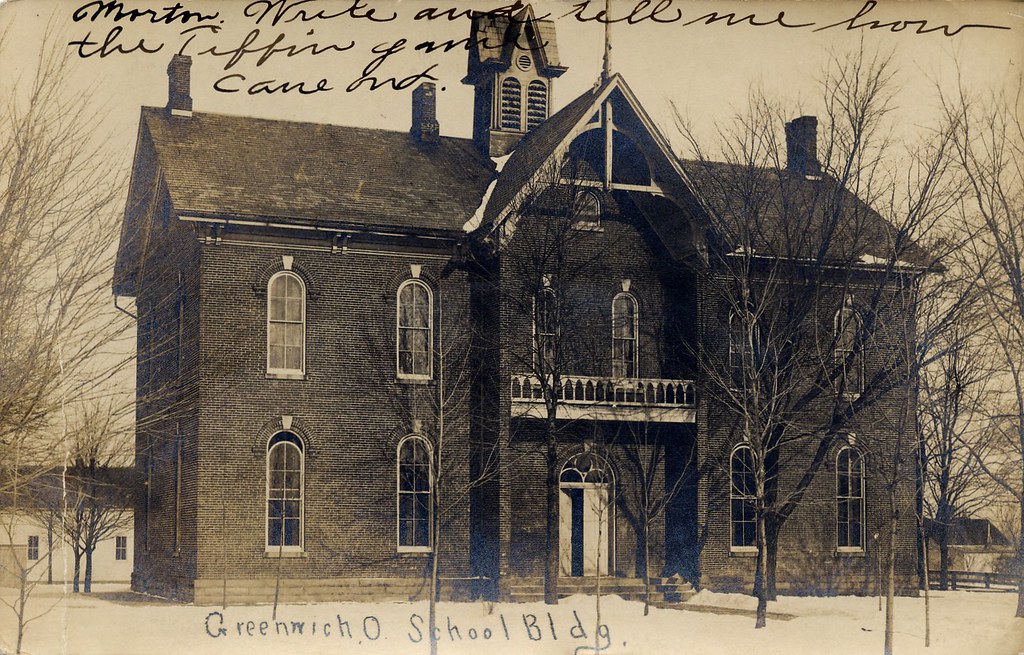 Morton. Write and tell me how
the Tiffin game
came out.
Greenwich, O. School Bldg.